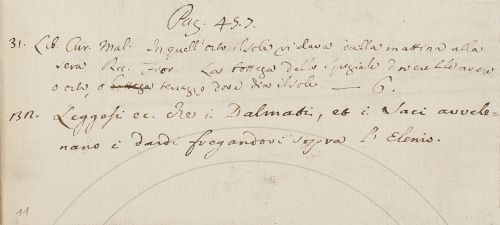 Pag. 457.
31. Lib. Cur. Mal. In quell'orto il sole vi dava dalla mattina alla
sera Ric. Fior. La bottega dello speziale dovrebbe avere
o orto, o bottega terrazzo dove dia il sole. — 6.
132. Leggesi ec. che i Dalmati, et i Saci avvele-
nano i dardi fregandovi sopra l'Elenio.
11